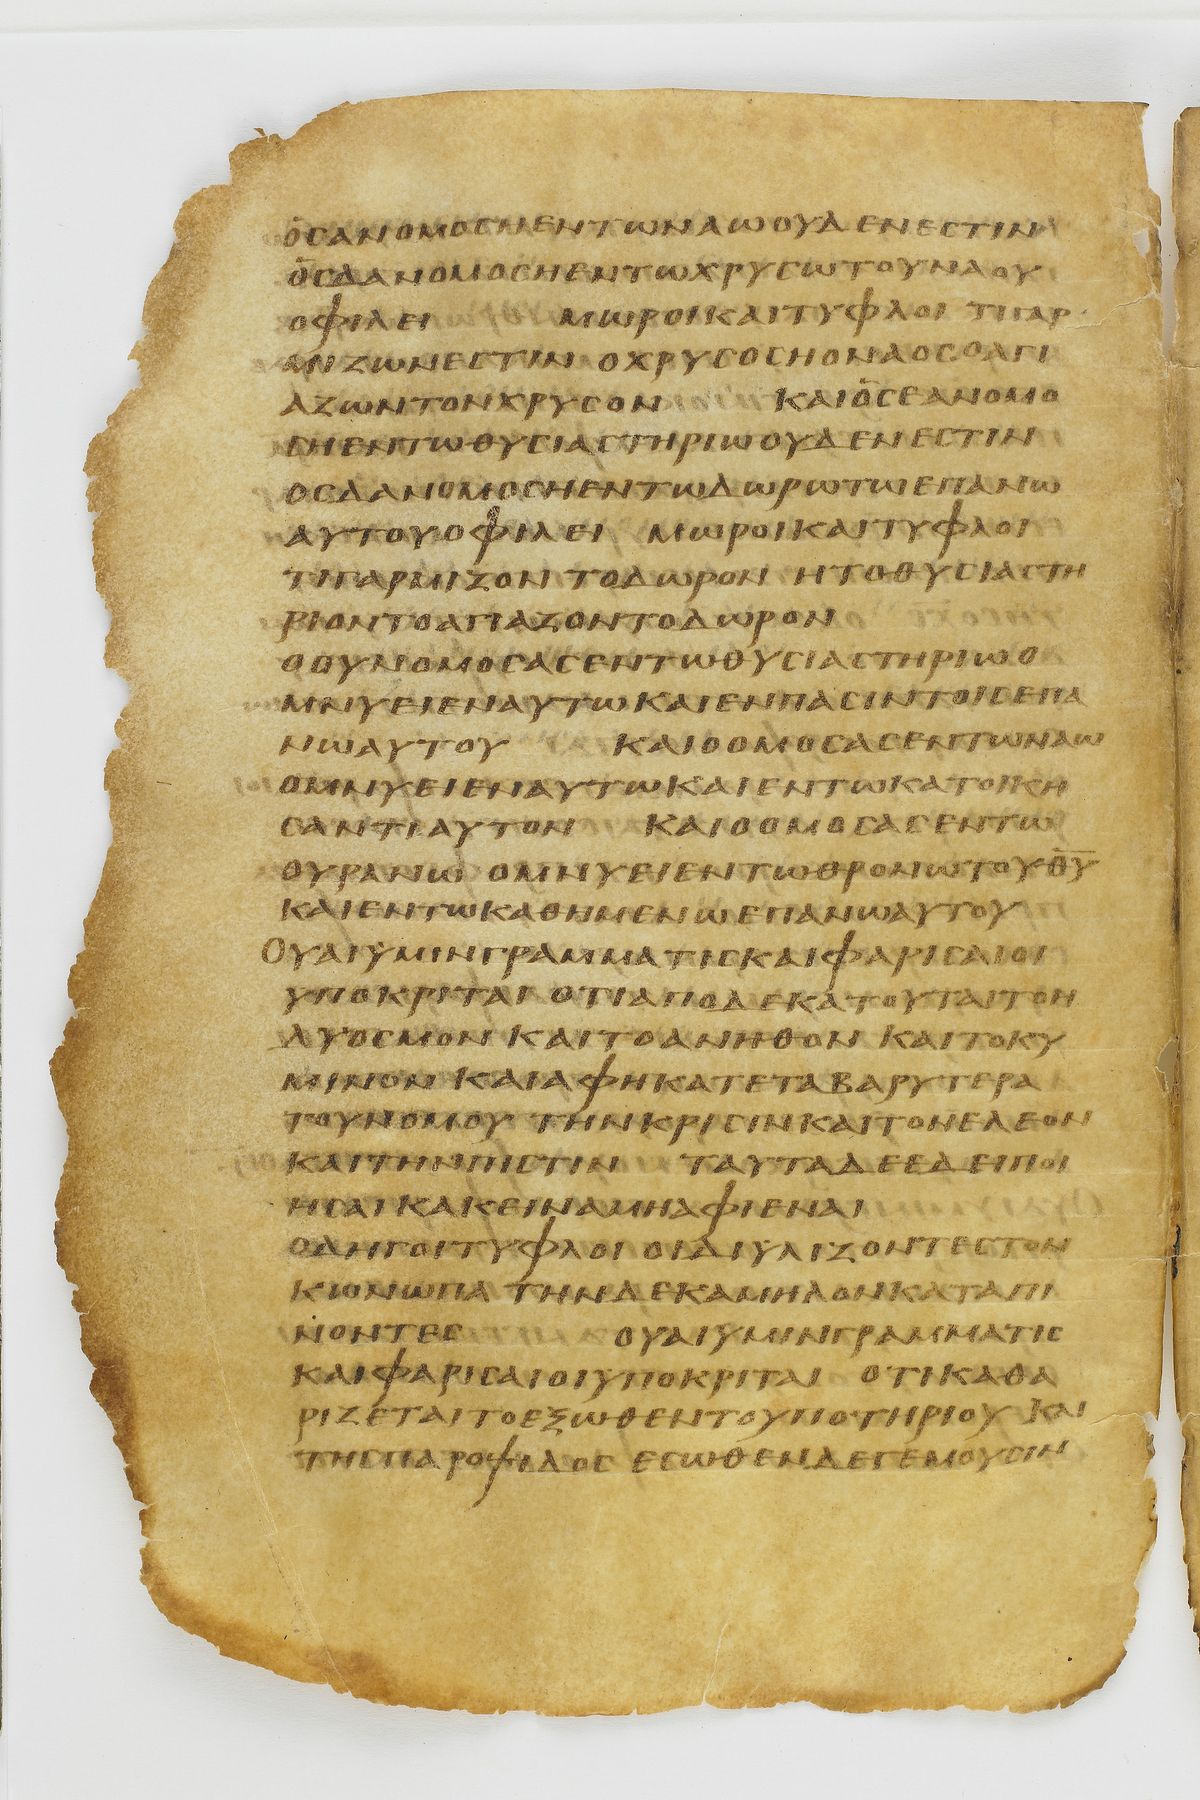 ὁϲανομοϲηεντωναωουδενεϲτιν
ὁϲδανομοϲηεντωχρυϲωτουναου
οφιλει μωροικαιτυφλοι τιγαρ
μιζωνεϲτιν οχρυϲοϲηοναοϲοαγι
αζωντονχρυϲον καιὁϲεανομο
ϲηεντωθυϲιαϲτηριωουδενεϲτιν
οϲδανομοϲηεντωδωρωτωεπανω
αυτουοφιλει μωροικαιτυφλοι
τιγαρμιζον τοδωρον ητοθυϲιαϲτη
ριοντοαγιαζοντοδωρον
οουνομοϲαϲεντωθυϲιαϲτηριωο
μνυειεναυτωκαιενπαϲιντοιϲεπα
νωαυτου καιοομοϲαϲεντωναω
ομνυειεναυτωκαιεντωκατοικη
ϲαντιαυτον καιοομοϲαϲεντω
ουρανω ομνυειεντωθρονωτουθ̅υ̅
καιεντωκαθημενωεπανωαυτου
Ουαιϋμινγραμματιϲκαιφαριϲαιοι
υποκριται οτιαποδεκατουταιτον
δυοϲμον καιτοανηθον καιτοκυ
μινον καιαφηκατεταβαρυτερα
τουνομου τηνκριϲινκαιτονελεον
καιτηνπιϲτιν ταυταδεεδειποι
ηϲαι κακειναμηαφιεναι
οδηγοιτυφλοι οιδιϋλιζοντεϲτον
κωνωπα τηνδεκαμηλονκαταπι
νοντεϲ ουαιϋμινγραμματιϲ
καιφαριϲαιοιϋποκριται οτικαθα
ριζεταιτοεξωθεντουποτηριου και
τηϲπαροψιδοϲ εϲωθενδεγεμουϲιν